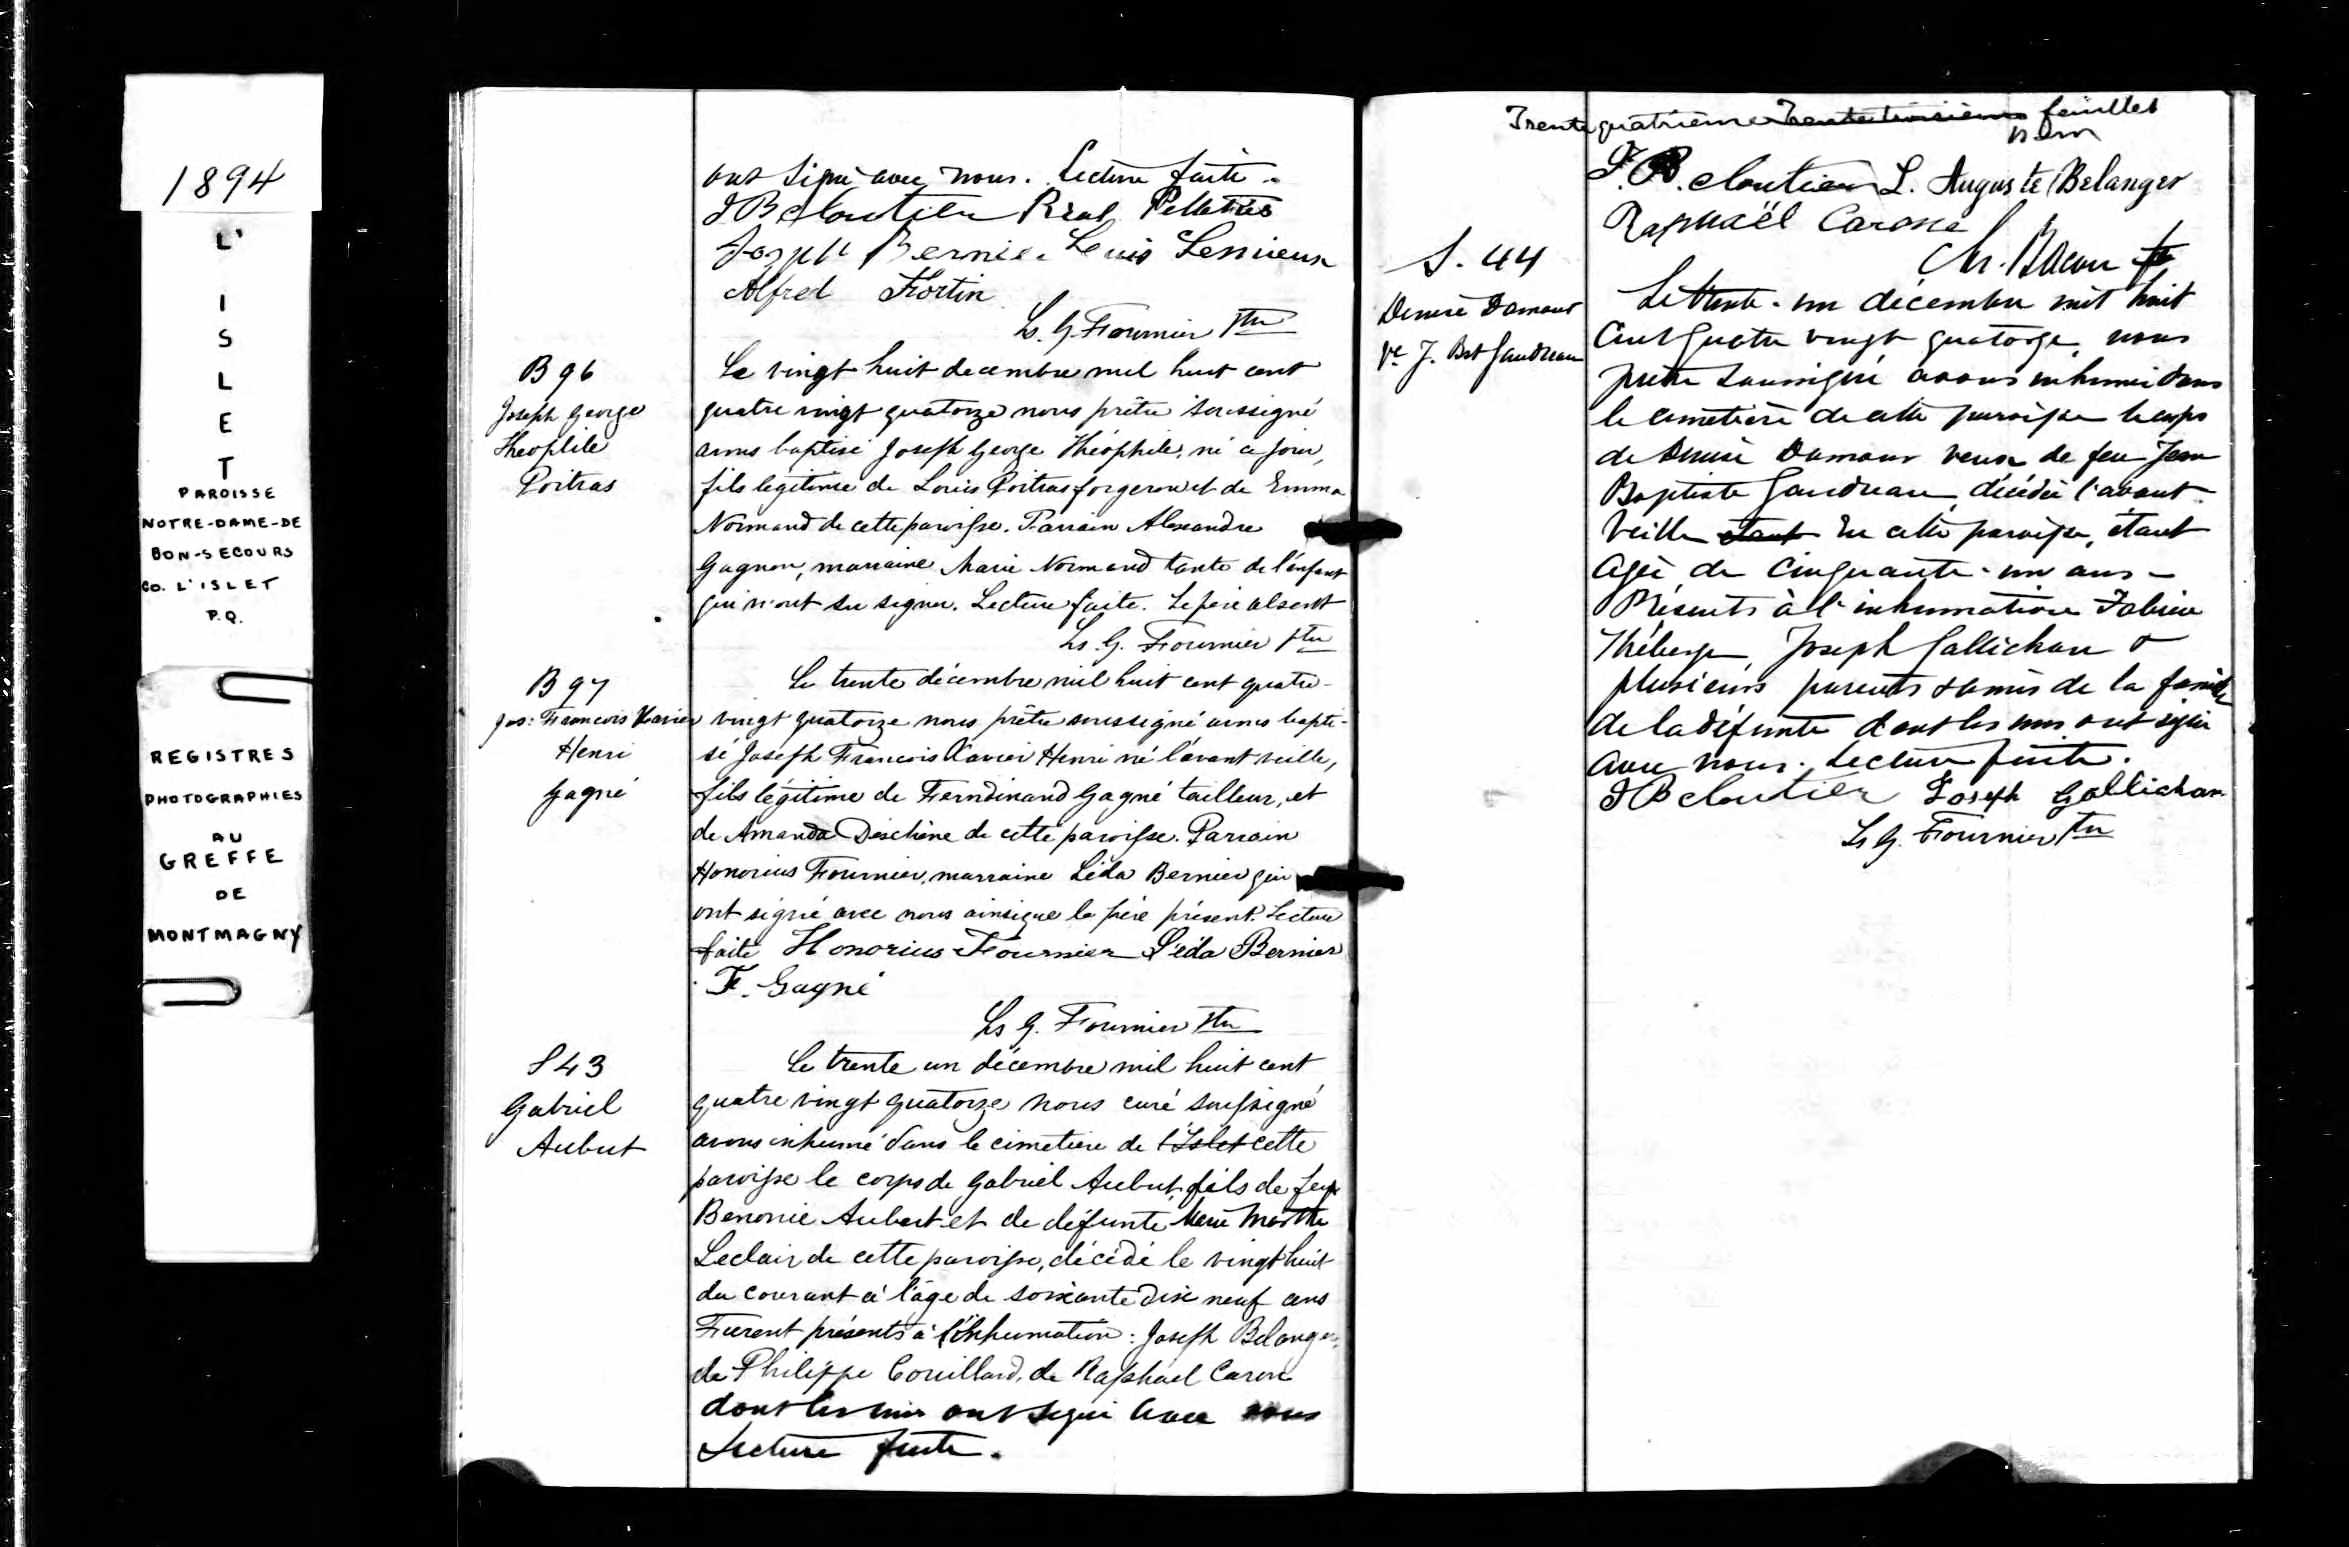 1894
L'
I
S
L
E
T
PAROISSE
NOTRE-DAME-DE
BON-SECOURS
CO. L'ISLET
P.Q.
REGISTRES
PHOTOGRAPHIES
AU
GREFFE
DE
MONTMAGNY
ont signé avec nous. Lecture faite.
J B Cloutier Réal Pelletier
Joseph Bernier Louis Lemieux
Alfred Fortin
Ls. G. Fournier Ptre
B 96
Joseph George
Théophile
Poitras
Le vingt huit decembre mil huit cent
quatre vingt quatorze nous prêtre soussigné
avons baptisé Joseph George Théophile, né ce jour,
fils legitime de Louis Poitras forgeron et de Emma
Normand de cette paroisse. Parrain Alexandre
Gagnon, marraine Marie Normand tante de l'enfant
qui n'ont su signer. Lecture faite. Le père absent
Ls. G. Fournier Ptre
B 97
Jos: François Xavier
Henri
Gagné
Le trente décembre mil huit cent quatre-
vingt quatorze nous prêtre soussigné avons bapti-
sé Joseph François Xavier Henri né l'avant veille,
fils légitime de Ferndinand Gagné tailleur, et
de Amanda Deschêne de cette paroisse. Parrain
Honorius Fournier, marraine Léda Bernier qui
ont signé avec nous ainsique le père présent. Lecture
faite Honorius Fournier Léda Bernier
F. Gagné
Ls G. Fournier Ptre
S 43
Gabriel
Aubut
Le trente un décembre mil huit cent
quatre vingt quatorze nous curé soussigné
avons inhumé dans le cimetière de l'Islet cette
paroisse le corps de Gabriel Aubut fils de feu
Benonie Aubut et de défunte Marie Marthe
Leclair de cette paroisse, décédé le vingt huit
du courant à l'âge de soixante dix neuf ans
Furent présents à l'inhumation: Joseph Belanger,
de Philippe Couillard, de Raphael Caron
dont les uns ont signé avec nous
Lecture faite.
Trente quatrième Trente troisième feuillet
J. B. Cloutier L. Auguste Belanger
Raphaël Caron
Ch. Bacon Ptre
S. 44
Denise Damour
Ve J. Bst Gaudreau
Le trente-un décembre mil huit
cent quatre vingt quatorze, nous
prêtre soussigné avons inhumé dans
le cimetière de cette paroisse le corps
de Denise Damour veuve de feu Jean
Baptiste Gaudreau, décédée l'avant
veille étant en cette paroisse, étant
agée de cinquante-un ans-
Présents à l'inhumation Fabien
Théberge, Joseph Gallichan &
plusieurs parents & amis de la famille
de la défunte dont les uns ont signé
avec nous. Lecture faite.
J B Cloutier Joseph Gallichan
Ls G. Fournier Ptre